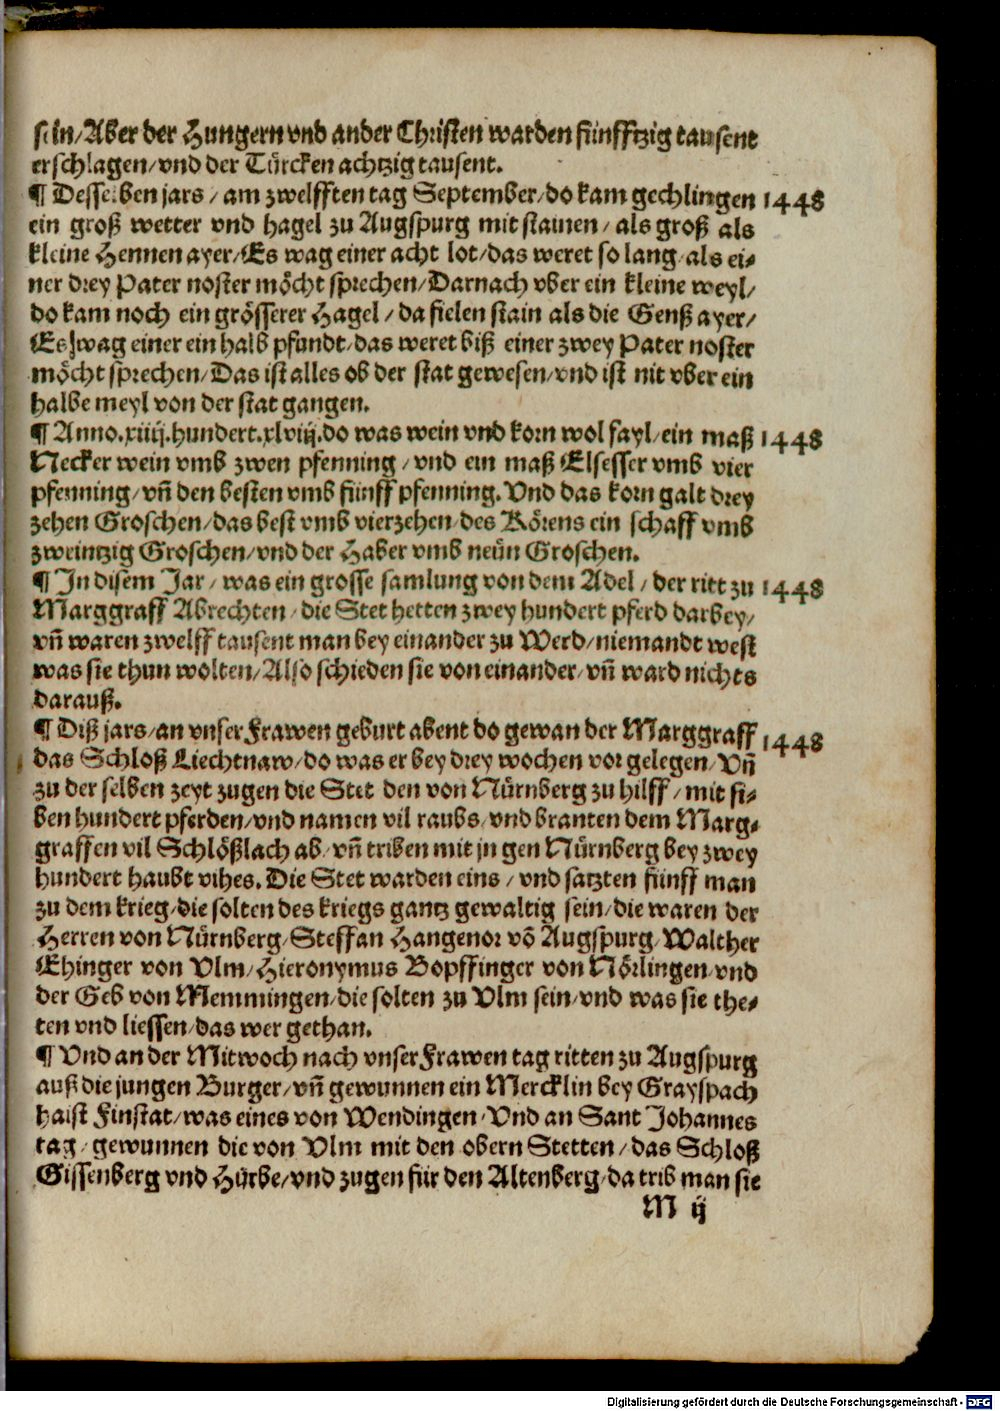 sein/Aber der Hungern vnd ander Christen warden fünfftzig tausent
erschlagen/vnd der Türcken achtzig tausent.
¶ Desselben jars/am zwelfften tag September/do kam gechlingen 1448
ein groß wetter vnd hagel zu Augspurg mit stainen/als groß als
kleine Hennen ayer/Es wag einer acht lot/das weret so lang/als ei⸗
ner drey Pater noster möcht sprechen/Darnach vber ein kleine weyl/
do kam noch ein grösserer Hagel/da fielen stain als die Genß ayer/
Es wag einer ein halb pfundt/das weret biß einer zwey Pater noster
möcht sprechen/Das ist alles ob der stat gewesen/vnd ist nit vber ein
halbe meyl von der stat gangen.
¶ Anno.xiiij.hundert.xlviij.do was wein vnd korn wol fayl/ein maß 1448
Necker wein vmb zwen pfenning/vnd ein maß Elsesser vmb vier
pfenning/vñ den besten vmb fünff pfenning.Vnd das korn galt drey
zehen Groschen/das best vmb vierzehen/des Körens ein schaff vmb
zweintzig Groschen/vnd der Haber vmb neün Groschen.
¶ In disem Jar/was ein grosse samlung von dem Adel/der ritt zu 1448
Marggraff Abrechten/die Stet hetten zwey hundert pferd darbey/
vñ waren zwelff tausent man bey einander zu Werd/niemandt west
was sie thun wolten/Also schieden sie von einander/vñ ward nichts
darauß.
¶ Diß jars/an vnser Frawen geburt abent do gewan der Marggraff 1448
das Schloß Liechtnaw/do was er bey drey wochen vor gelegen/Vñ
zu der selben zeyt zugen die Stet den von Nürnberg zu hilff/mit si⸗
ben hundert pferden/vnd namen vil raubs/vnd branten dem Marg⸗
graffen vil Schlößlach ab/vñ triben mit jn gen Nürnberg bey zwey
hundert haubt vihes.Die Stet warden eins/vnd satzten fünff man
zu dem krieg/die solten des kriegs gantz gewaltig sein/die waren der
Herren von Nürnberg/Steffan Hangenor võ Augspurg/Walther
Ehinger von Vlm/Hieronymus Bopffinger von Nörlingen/vnd
der Geb von Memmingen/die solten zu Vlm sein/vnd was sie the⸗
ten vnd liessen/das wer gethan.
¶ Vnd an der Mitwoch nach vnser Frawen tag ritten zu Augspurg
auß die jungen Burger/vñ gewunnen ein Mercklin bey Grayspach
haist Finstat/was eines von Wendingen/Vnd an Sant Johannes
tag/gewunnen die von Vlm mit den obern Stetten/das Schloß
Gissenberg vnd Hürbe/vnd zugen für den Altenberg/da trib man sie
M ij
Digitalisierung gefördert durch die Deutsche Forschungsgemeinschaft - DFG